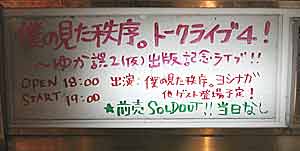 僕の見た秩序。トークライブ4!
〜ゆか誤2(仮)出版記念ライブ!!
OPEN 18:00 出演:僕の見た秩序。ヨシナガ
START 19:00 他ゲスト登場予定!
★前売SOLDOUT!!当日なし